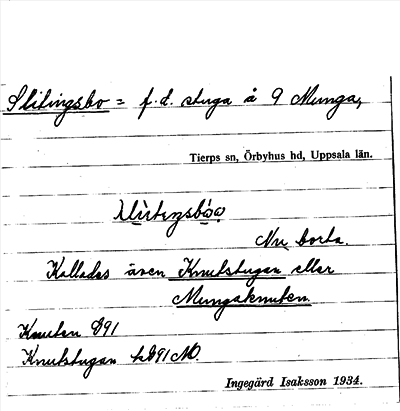 Slitingsbo = f.d. stuga å 9 Munga,
Tierps sn, Örbyhus hd, Uppsala län.
Nu borta.
Kallades även Knutstugan eller
Mungaknuten.
Knuten 891
Knutstugan h891 M.
Ingegärd Isaksson 1934.